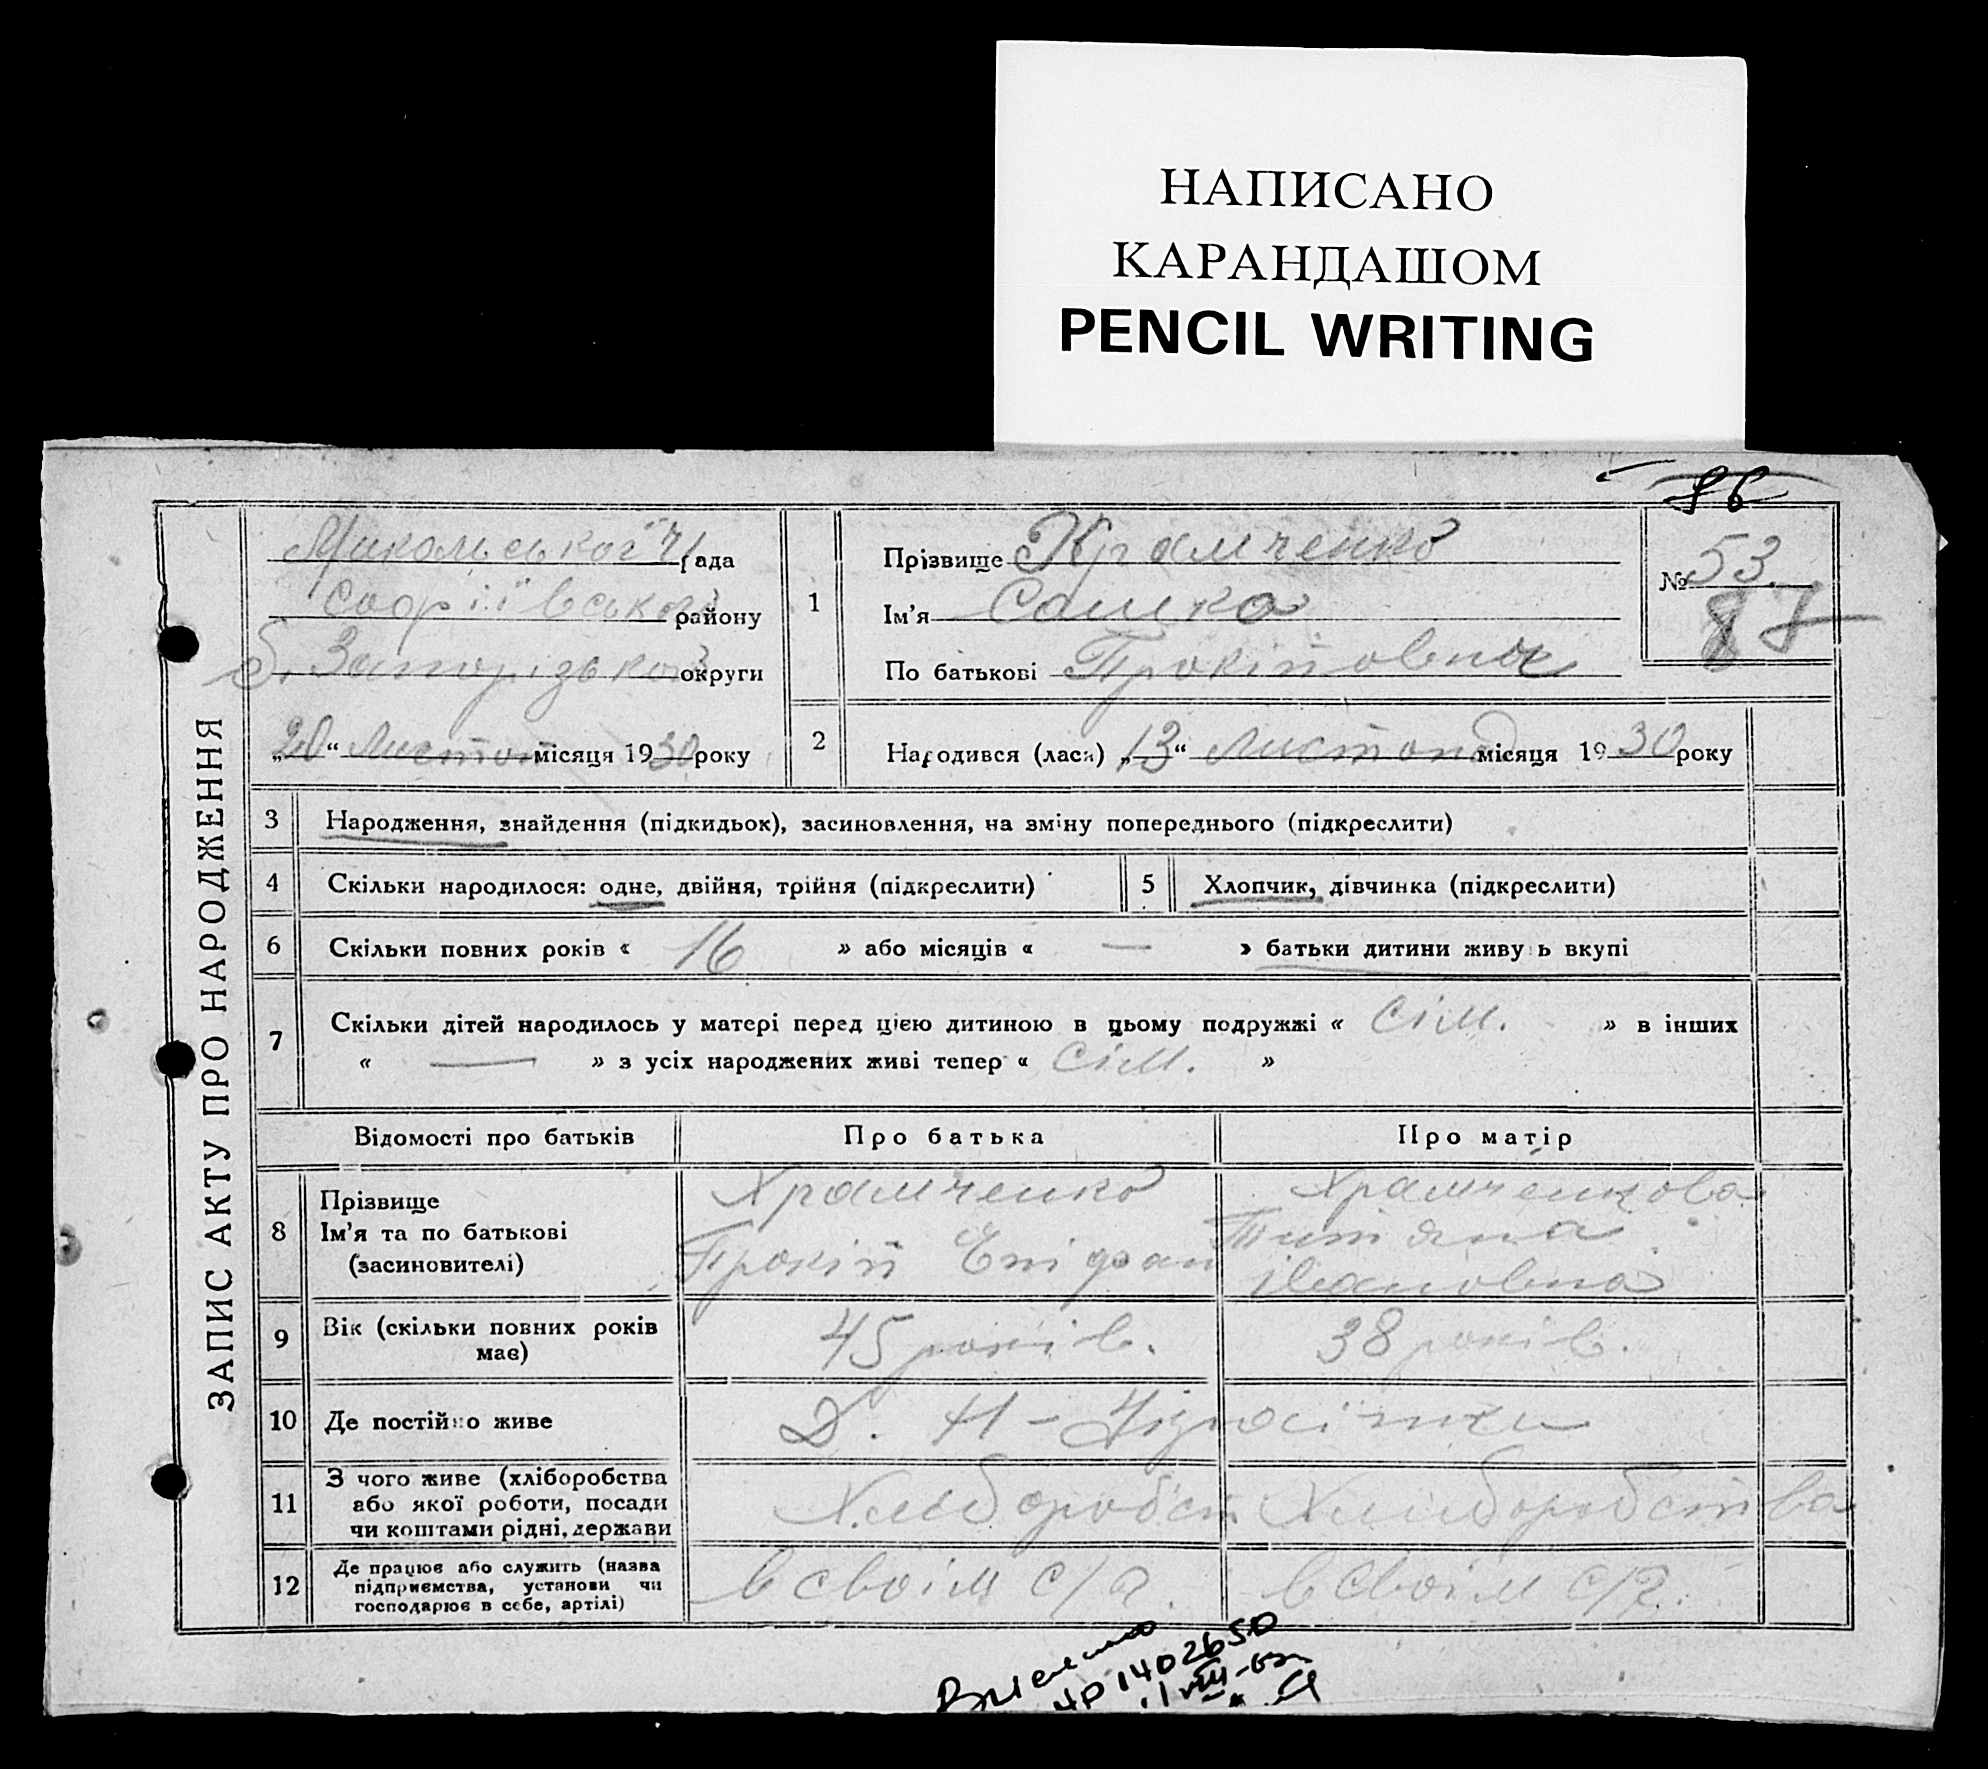 НАПИСАНО
КАРАНДАШОМ
PENCIL WRITING
86
ЗАПИС АКТУ ПРО НАРОДЖЕННЯ
Микольської рада
Софіївського району
б. Запорізької округи
„20“ Листоп місяця 1930 року
1
Прізвище Храмченко
Ім'я Сашко
По батькові Прокіпович
№ 53.
87
2 Народився (лася) „13“ Листопад місяця 1930 року
3 Народження, знайдення (підкидьок), засиновлення, на зміну попереднього (підкреслити)
4 Скільки народилося: одне, двійня, трійня (підкреслити)
5 Хлопчик, дівчинка (підкреслити)
6 Скільки повних років « 16 » або місяців « — » батьки дитини живуть вкупі
7 Скільки дітей народилось у матері перед цією дитиною в цьому подружжі « сім. » в інших
« — » з усіх народжених живі тепер « сім. »
Відомості про батьків Про батька Про матір
8 Прізвище
Ім'я та по батькові
(засиновителі)
Храмченко
Прокіп Епіфан
Храмченкова
Титяна
Івановна
9 Вік (скільки повних років
має)
45 років. 38 років.
10 Де постійно живе
11 З чого живе (хліборобства
або якої роботи, посади
чи коштами рідні, держави
Хліборобст Хліборобства
12 Де працює або служить (назва
підприємства, установи чи
господарює в себе, артілі)
в своім с/г. в своім с/г.